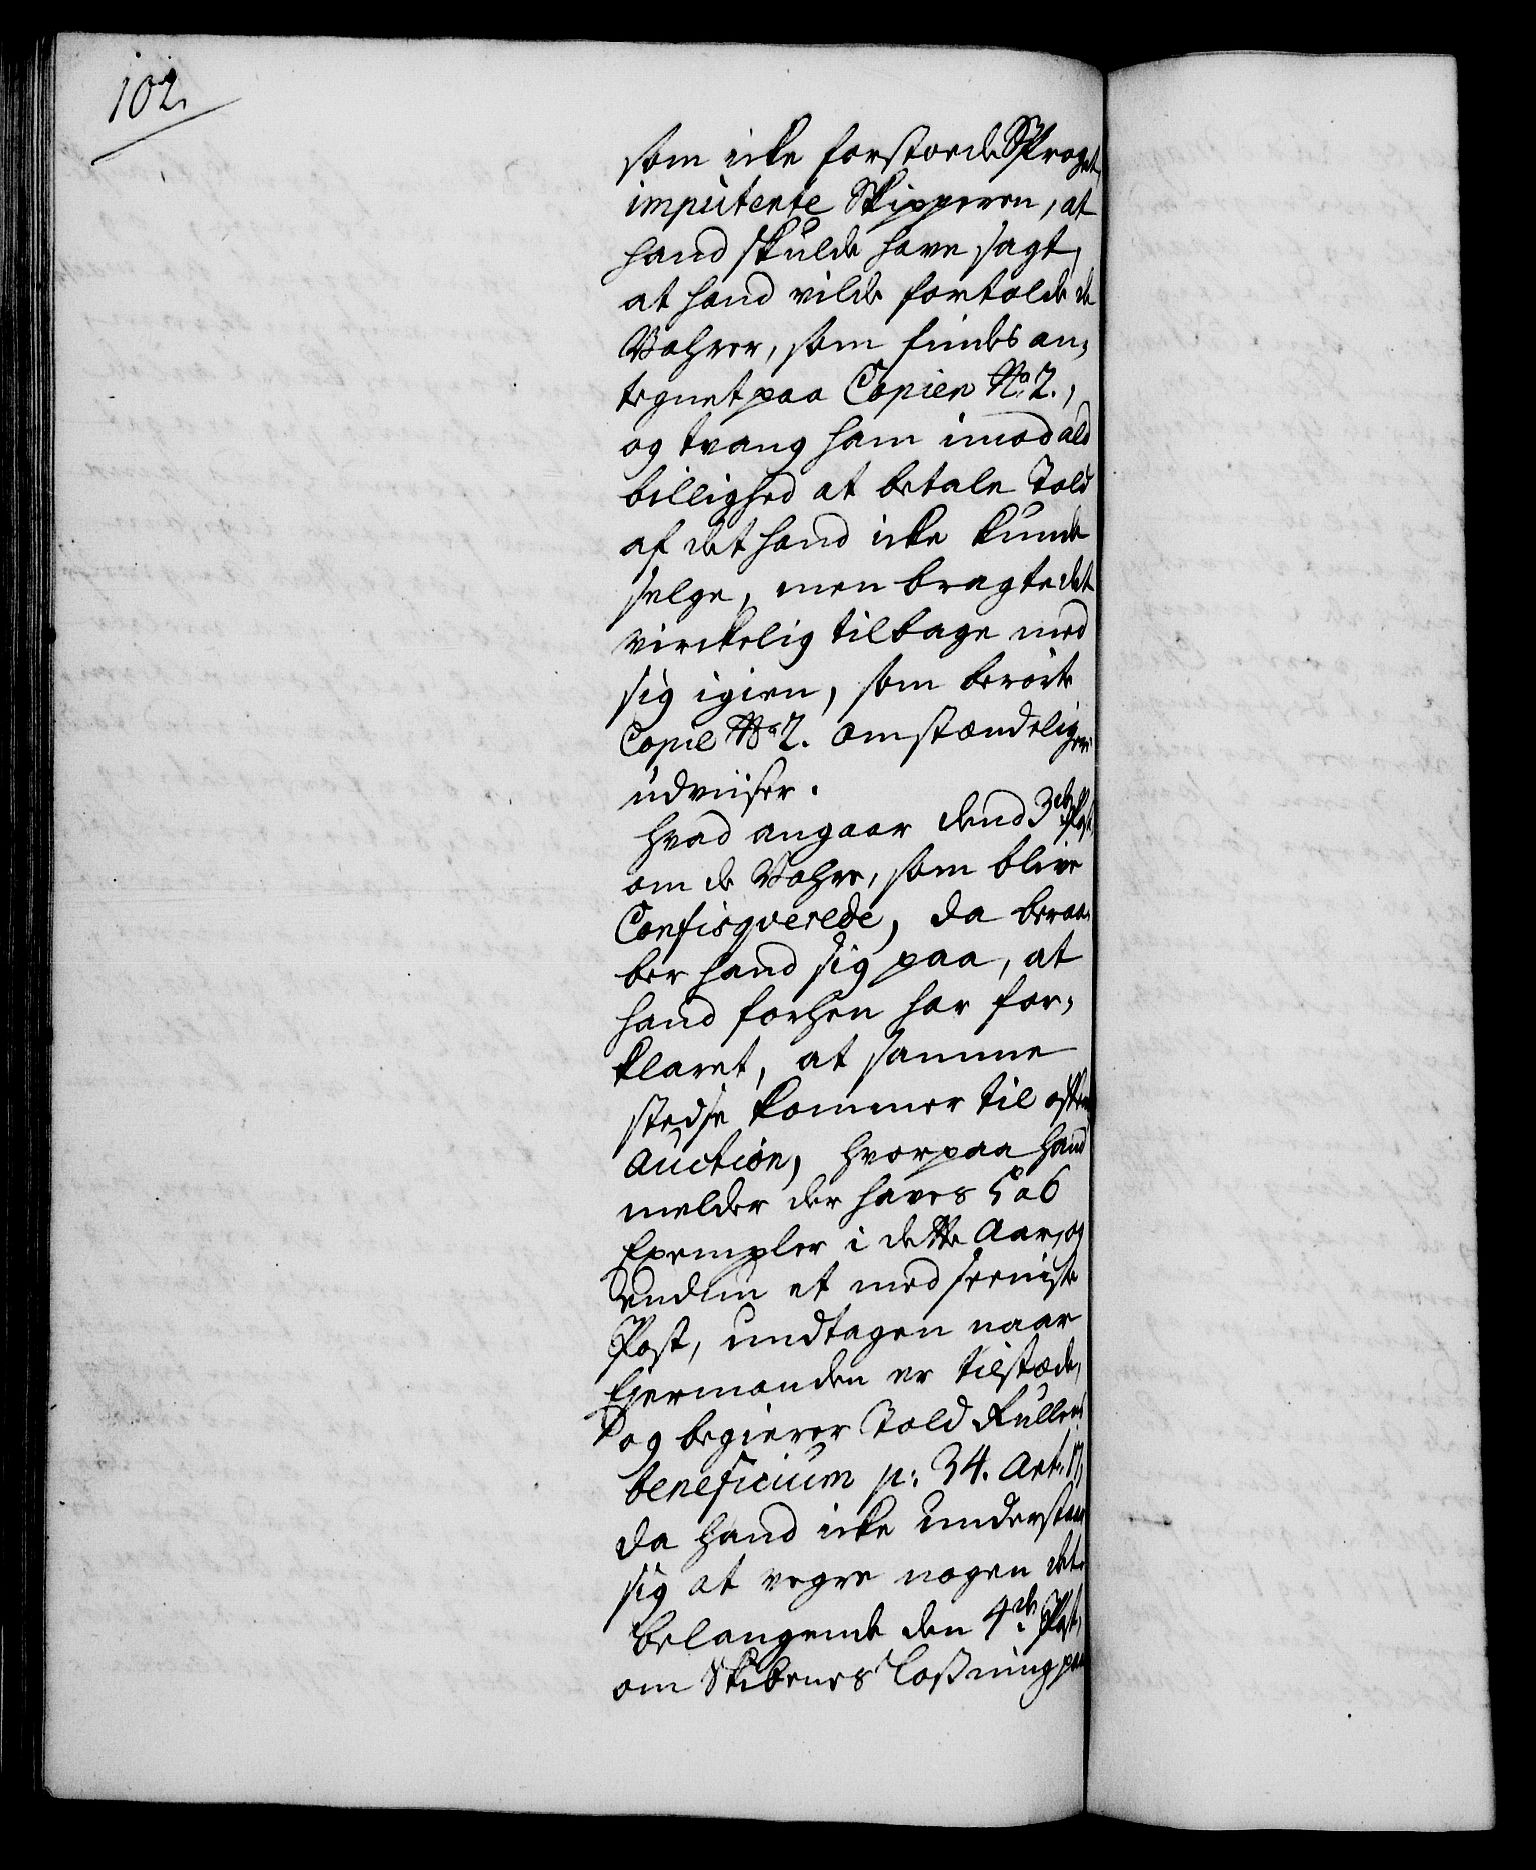 102.
som icke forstoede Sproget,
imputerte Skipperen, at
hand skulde have sagt,
at hand vilde fortolde de
Vahrer, som findes an-
tegnet paa Copien No. 2.,
og tvang ham imod ald
billighed at betale Told
af det hand icke kunde
selge, men bragte det
virckelig tilbage med
sig igien, som berørte
Copie No. 2. omstændeligere
udviiser.
Hvad angaar dend 3de Post,
om de Vahre, som blive
Confisqverede, da beraa-
ber hand sig paa, at
hand forhen har for-
klaret, at samme
stedse kommer til
Auction, hvorpaa hand
melder der haves 5 a 6
Exempler i dette Aar, og
endnu et med seeniste
Post, undtagen naar
Ejermanden er tilstæde,
og begierer Told Rullens
beneficium p: 34. Art: 17,
da hand icke understaar
sig at vegre nogen det.
Belangende den 4de Post,
om Skibenes Losning paa